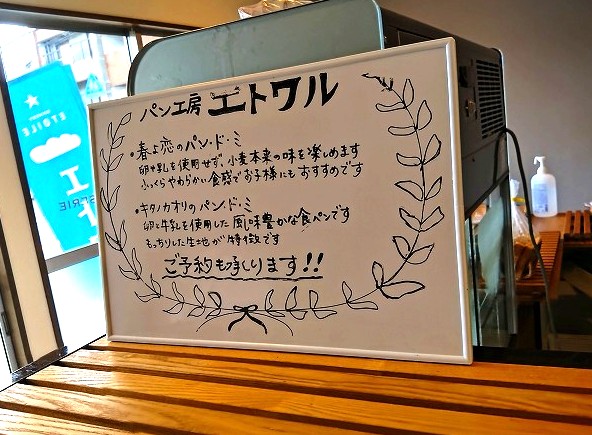 パン工房 エトワル
・春よ恋のパン・ド・ミ
卵や乳を使用せず、小麦本来の味を楽しめます
ふっくらやわらかい食感でお子様にもおすすめです
・キタノカオリのパン・ド・ミ
卵と牛乳を使用した風味豊かな食パンです
もっちりした生地が特徴です
ご予約も承ります!!
ETOILE